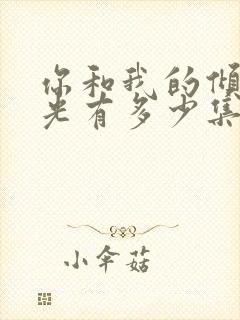 你和我的倾
光有多少集
小伞菇